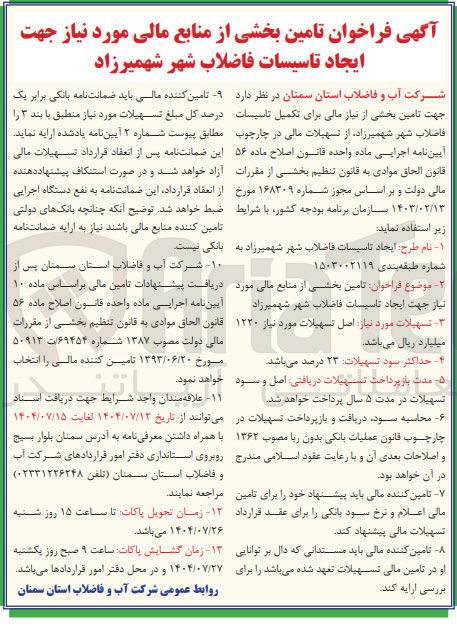 آگهی فراخوان تامین بخشی از منابع مالی مورد نیاز جهت
ایجاد تاسیسات فاضلاب شهر شهمیرزاد
شرکت آب و فاضلاب استان سمنان در نظر دارد
جهت تامین بخشی از نیاز مالی برای تکمیل تاسیسات
فاضلاب شهر شهمیرزاد، از تسهیلات مالی در چارچوب
آیین‌نامه اجرایی ماده واحده قانون اصلاح ماده ۵۶
قانون الحاق موادی به قانون تنظیم بخشی از مقررات
مالی دولت و بر اساس مجوز شماره ۱۶۸۳۰۹ مورخ
۱۴۰۳/۰۲/۱۳ سازمان برنامه بودجه کشور، با شرایط
زیر استفاده نماید:
۱- نام طرح: ایجاد تاسیسات فاضلاب شهر شهمیرزاد به
شماره طبقه‌بندی ۱۵۰۳۰۰۲۱۱۹
۲- موضوع فراخوان: تامین بخشی از منابع مالی مورد
نیاز جهت ایجاد تاسیسات فاضلاب شهر شهمیرزاد
۳- تسهیلات مورد نیاز: اصل تسهیلات مورد نیاز ۱۲۲۰
میلیارد ریال می‌باشد.
۴- حداکثر سود تسهیلات: ۲۳ درصد می‌باشد.
۵- مدت بازپرداخت تسهیلات دریافتی: اصل و سود
تسهیلات در مدت ۵ سال پرداخت خواهد شد.
۶- محاسبه سود، دریافت و بازپرداخت تسهیلات در
چارچوب قانون عملیات بانکی بدون ربا مصوب ۱۳۶۲
و اصلاحات بعدی آن و با رعایت عقود اسلامی مندرج
در آن خواهد بود.
۷- تامین‌کننده مالی باید پیشنهاد خود را برای تامین
مالی اعلام و نرخ سود بانکی را برای عقد قرارداد
تسهیلات مالی پیشنهاد کند.
۸- تامین‌کننده مالی باید مستنداتی که دال بر توانایی
او در تامین مالی تسهیلات تعهد شده می‌باشد را برای
بررسی ارایه کند.
۹- تامین‌کننده مالی باید ضمانت‌نامه بانکی برابر یک
درصد کل مبلغ تسهیلات مورد نیاز منطبق با بند ۳ را
مطابق پیوست شماره ۲ آیین‌نامه یادشده ارایه نماید.
این ضمانت‌نامه پس از انعقاد قرارداد تسهیلات مالی
آزاد خواهد شد و در صورت استنکاف پیشنهاددهنده
از انعقاد قرارداد، این ضمانت‌نامه به نفع دستگاه اجرایی
ضبط خواهد شد. توضیح آنکه چنانچه بانک‌های دولتی
تامین کننده منابع مالی باشند نیاز به ارایه ضمانت‌نامه
بانکی نیست.
۱۰- شرکت آب و فاضلاب استان سمنان پس از
دریافت پیشنهادات تامین مالی براساس ماده ۱۰
آیین‌نامه اجرایی ماده واحده قانون اصلاح ماده ۵۶
قانون الحاق موادی به قانون تنظیم بخشی از مقررات
مالی دولت مصوب ۱۳۸۷ شماره ۶۹۴۵۴/ت ۵۰۹۱۳
مورخ ۱۳۹۳/۰۶/۲۰ تامین کننده مالی را انتخاب
خواهد نمود.
۱۱- علاقه‌مندان واجد شرایط جهت دریافت اسناد
می‌توانند از تاریخ ۱۴۰۴/۰۷/۱۲ لغایت ۱۴۰۴/۰۷/۱۵
با همراه داشتن معرفی‌نامه به آدرس سمنان بلوار بسیج
روبروی استانداری دفتر امور قراردادهای شرکت آب
و فاضلاب استان سمنان (تلفن ۰۲۳۳۱۲۲۶۲۴۸)
مراجعه نمایند.
۱۲- زمان تحویل پاکات: تا ساعت ۱۵ روز شنبه
۱۴۰۴/۰۷/۲۶ می‌باشد.
۱۳- زمان گشایش پاکات: ساعت ۹ صبح روز یکشنبه
۱۴۰۴/۰۷/۲۷ و در محل دفتر امور قراردادها می‌باشد.
روابط عمومی شرکت آب و فاضلاب استان سمنان